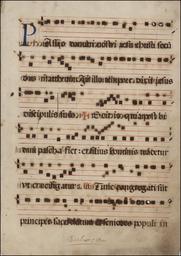 Passio domini nostri iesu christi secū
dum mattheum. In illo tempore: dixit iesus
discipulis suis: Scitis quia post bi
duum pascha fiet: et filius hominis tradetur
ut crucifigatur. s. Tunc congregati sunt
principes sacerdotum et seniores populi in